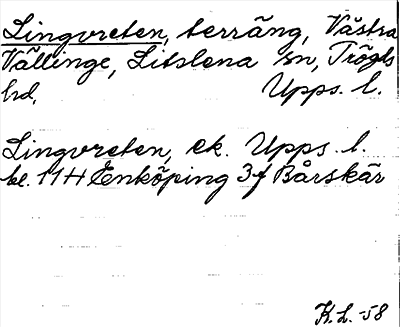 Lingvreten, terräng, Västra
Vällinge, Litslena sn, Trögds
hd, Upps. l.
Lingvreten, ek. Upps. l.
bl. 11H Enköping 3f Bårskär
K.L. -58